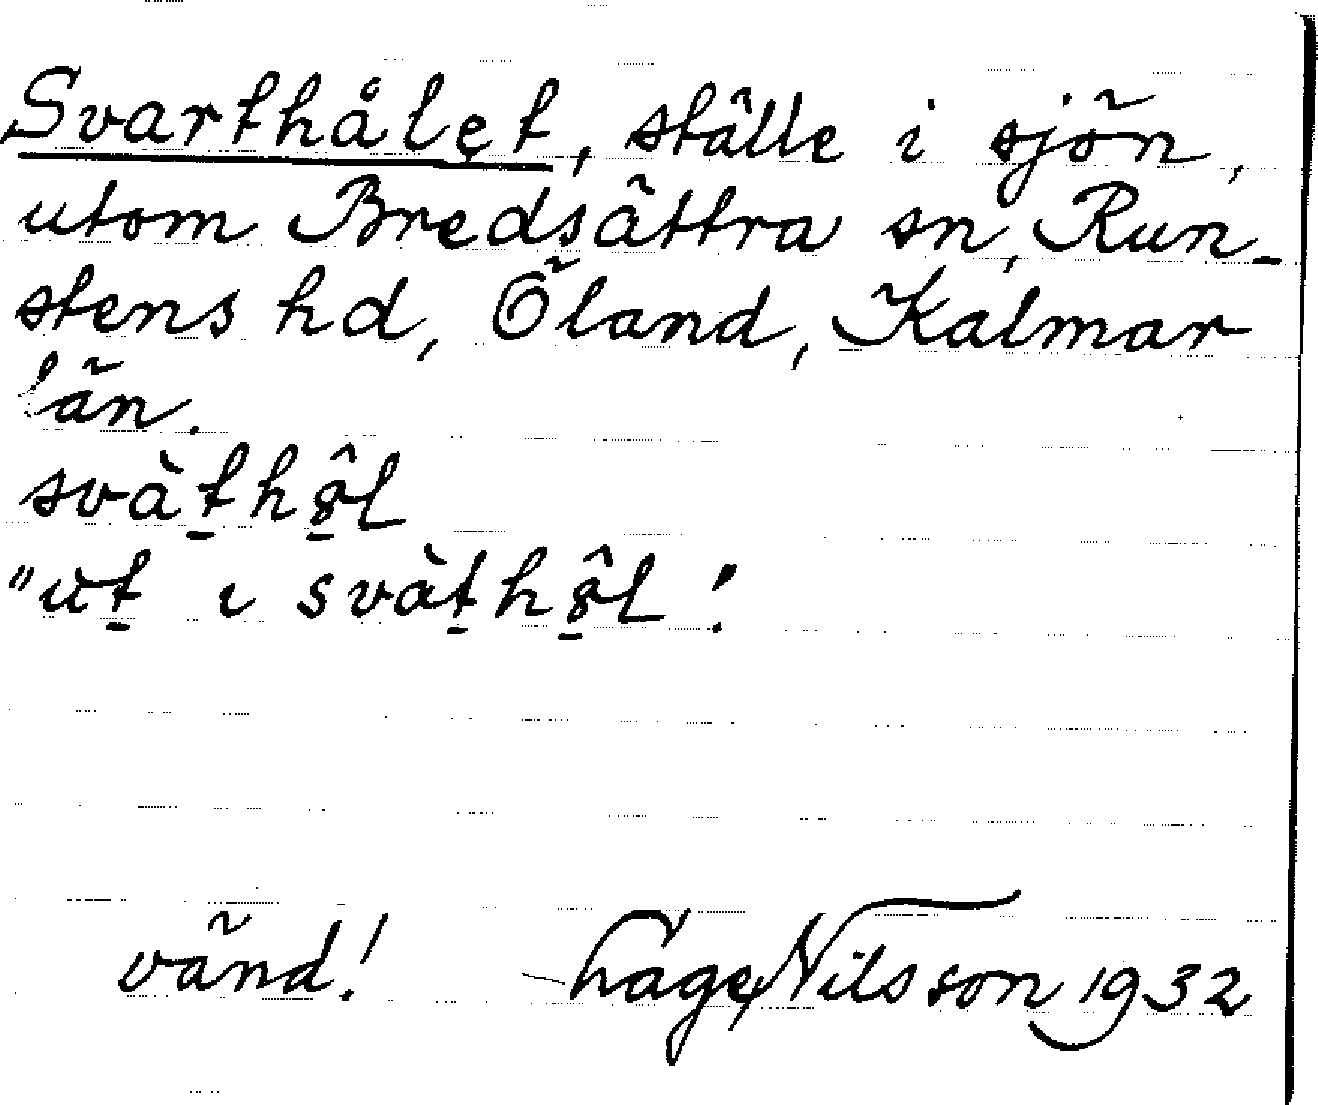 Svarthålet, ställe i sjön,
utom Bredsättra sn, Run-
stens hd, Öland, Kalmar
län.
svàt̠ho̠̭l
"ùt̠ ı svàt̠ho̠̭l!
vänd! Nilsson 1932